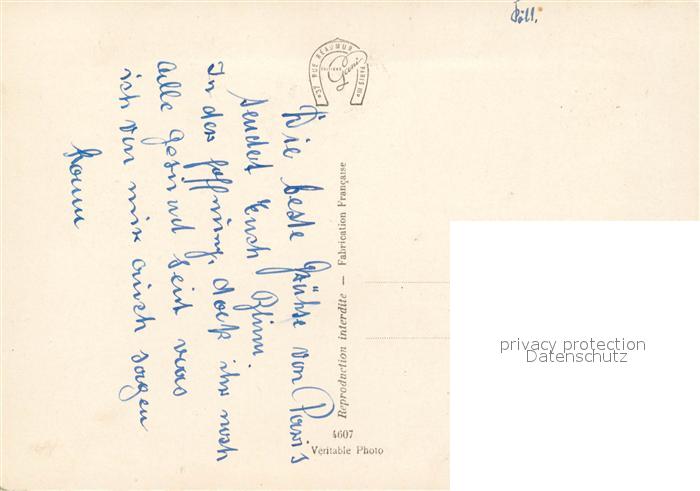 Die beste Grühse von Paris
sendet Euch
In der Hoffnung, dock ihr noch
alle Gesind seit was
ich von mir auch sagen
kann
37 RUE RÉAUMUR PARIS III
ÉDITIONS Guni
Reproduction interdite — Fabrication Française
4607
Véritable Photo
privacy protection
Datenschutz